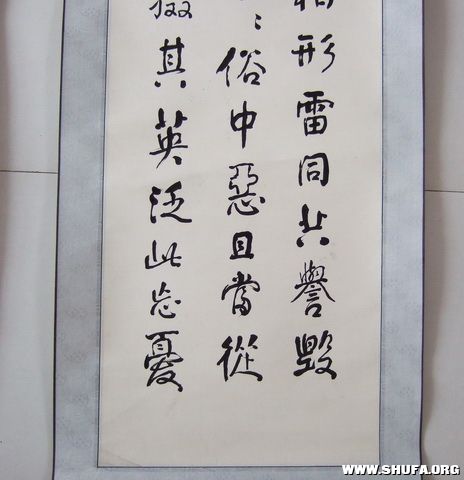 相形雷同共譽毀
俗中惡且當從
掇其英泛此忘憂
WWW.SHUFA.ORG